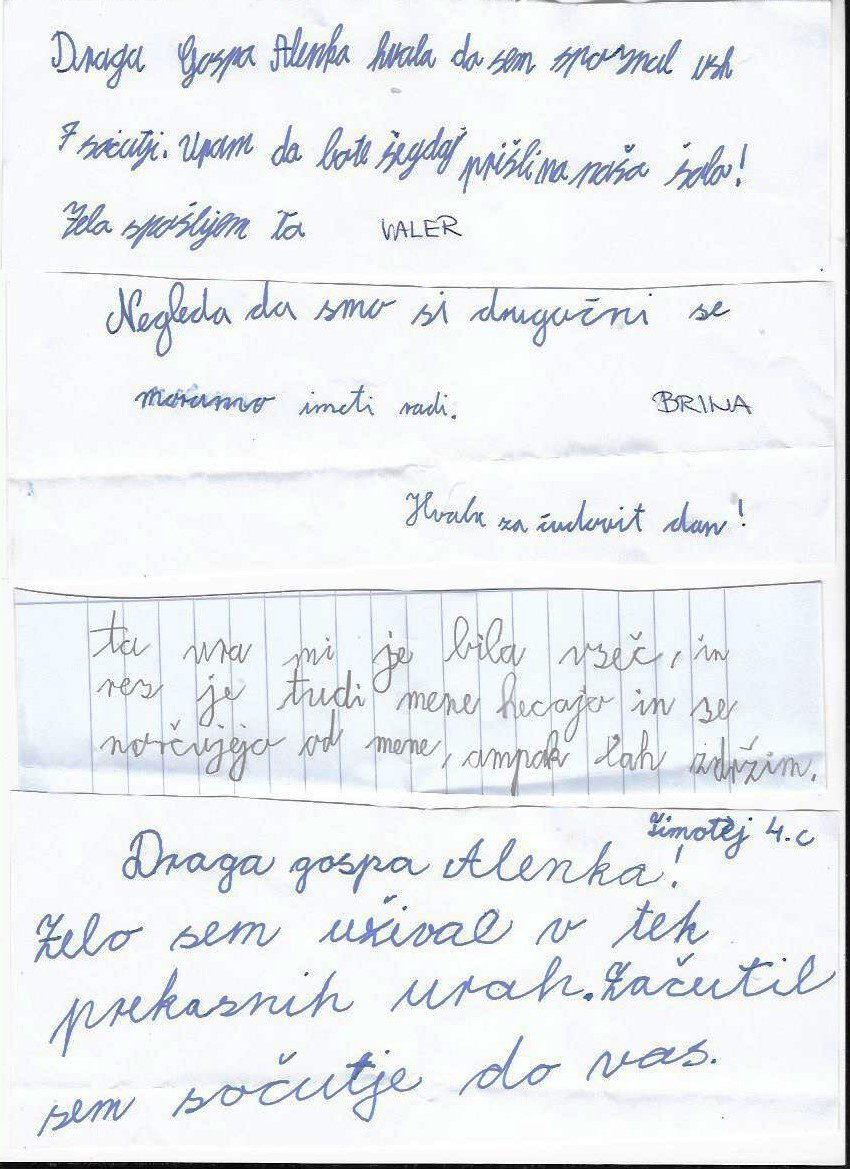 Draga Gospa Alenka hvala da sem spoznal vsh
7 sočutji. Upam da bote šegdaj prišli na naša šola!
Zela spošlijem ta VALER
Negleda da smo si drugačni se
moramo imeti radi. BRINA
Hvala za čudovit dan!
ta ura mi je bila vseč, in
res je tudi mene hecajo in se
norčujejo od mene, ampak lah zdržim.
Timotej 4.c
Draga gospa Alenka!
Zelo sem užival v teh
prekasnih urah. Začutil
sem sočutje do vas.